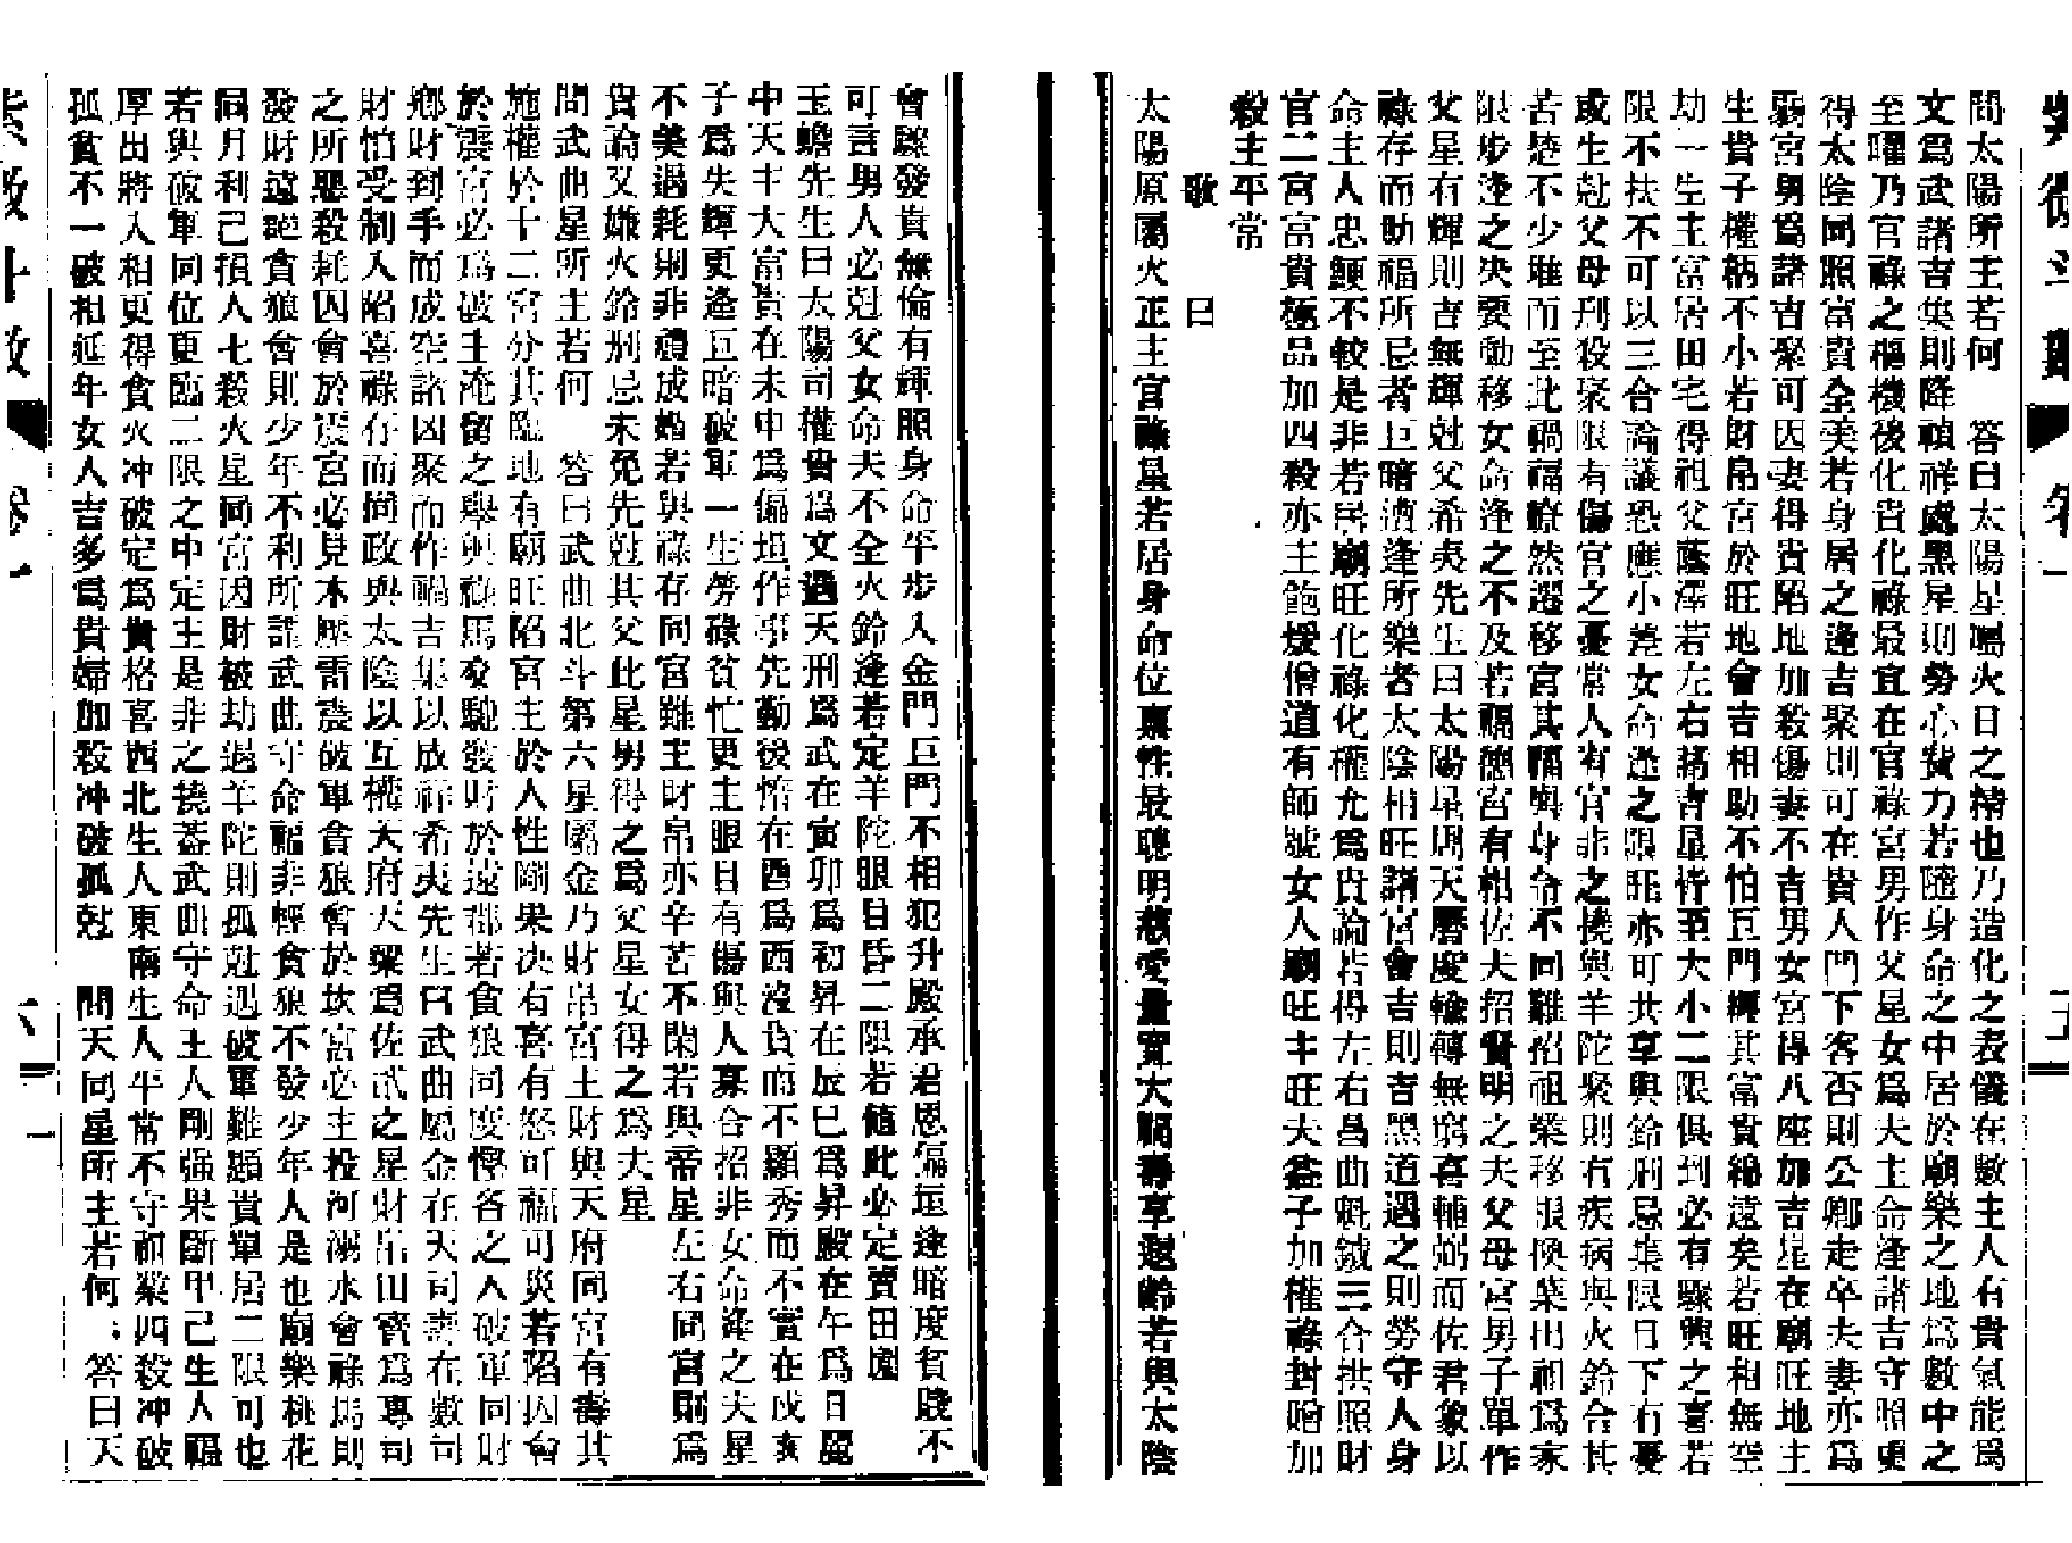 紫微斗數 卷一 五
問太陽所主若何 答曰太陽星屬火日之精也乃造化之表儀在數主人有貴氣能爲
文爲武諸吉集則降禎祥處黑星則勞心費力若隨身命之中居於廟樂之地爲數中之
至曜乃官祿之樞機後化貴化祿最宜在官祿宮男作父星女爲夫主命逢諸吉守照更
得太陰同照富貴全美若身居之逢吉聚則可在貴人門下客否則公卿走卒夫妻亦爲
弱宮男爲諸吉聚可因妻得貴陷地加殺傷妻不吉男女宮得八座加吉星在廟旺地主
生貴子權柄不小若財帛宮於旺地會吉相助不怕巨門躔其富貴綿遠矣若旺相無空
劫一生主富居田宅得祖父蔭澤若左右諸吉星皆至大小二限俱到必有驟興之喜若
限不扶不可以三合論議恐應小差女命逢之限旺亦可共享與鈴刑忌集限目下有憂
或生尅父母刑殺聚限有傷官之憂常人有官非之撓與羊陀聚則有疾病與火鈴合其
苦楚不少雖而至此禍福瞭然遷移宮其福與身命不同難招祖業移根換葉出祖爲家
限步逢之決要動移女命逢之不及若福德宮有相佐夫招賢明之夫父母宮男子單作
父星有輝則吉無輝尅父希夷先生曰太陽星周天曆度輪轉無窮喜輔弼而佐君象以
祿存而助福所忌者巨暗遭逢所樂者太陰相旺諸宮會吉則吉黑道遇之則勞守人身
命主人忠鯁不較是非若居廟旺化祿化權尤爲貴論若得左右昌曲魁鉞三合拱照財
官二宮富貴極品加四殺亦主飽煖僧道有師號女人廟旺主旺夫益子加權祿封贈加
殺主平常
歌 曰
太陽原屬火正主官祿星若居身命位稟性最聰明慈愛量寬大福壽享遐齡若與太陰
會驟發貴無倫有輝照身命平步入金門巨門不相犯升殿承君恩偏垣逢暗度貧賤不
可言男人必尅父女命夫不全火鈴逢若定羊陀眼目昏二限若値此必定賣田園
玉蟾先生曰太陽司權貴爲文遇天刑爲武在寅卯爲初昇在辰巳爲昇殿在午爲日麗
中天主大富貴在未申爲偏垣作事先勤後惰在酉爲西沒貴而不顯秀而不實在戌亥
子爲失輝更逢巨暗破軍一生勞碌貧忙更主眼目有傷與人寡合招非女命逢之夫星
不美遇耗則非禮成婚若與祿存同宮雖主財帛亦辛苦不閑若與帝星左右同宮則爲
貴論又嫌火鈴刑忌未免先尅其父此星男得之爲父星女得之爲夫星
問武曲星所主若何 答曰武曲北斗第六星屬金乃財帛宮主財與天府同宮有壽其
施權於十二宮分其臨地有廟旺陷宮主於人性剛果決有喜有怒可福可災若陷囚會
於震宮必爲破主淹留之舉與祿馬交馳發財於遠郡若貪狼同度慳吝之人破軍同財
鄉財到手而成空諸凶聚而作禍吉集以成祥希夷先生曰武曲屬金在天司壽在數司
財怕受制入陷喜祿存而同政與太陰以互權天府天梁爲佐貳之星財帛田宅爲專司
之所惡殺耗囚會於震宮必見木壓雷震破軍貪狼會於坎宮必主投河溺水會祿馬則
發財遠郡貪狼會則少年不利所謂武曲守命福非輕貪狼不發少年人是也廟樂桃花
同月利己損人七殺火星同宮因財被劫遇羊陀則孤尅遇破軍難顯貴單居二限可也
若與破軍同位更臨二限之中定主是非之撓蓋武曲守命主人剛强果斷甲己生人福
厚出將入相更得貪火冲破定爲貴格喜西北生人東南生人平常不守祖業四殺冲破
孤貧不一破相延年女人吉多爲貴婦加殺冲破孤尅 問天同星所主若何 答曰天
紫微斗數 卷一 六